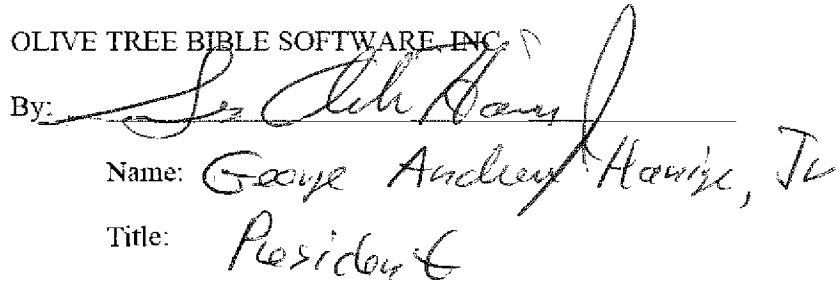 OLIVE TREE BIBLE SOFTWARE, INC.
By:
Name: George Andrew Jr
Title: President